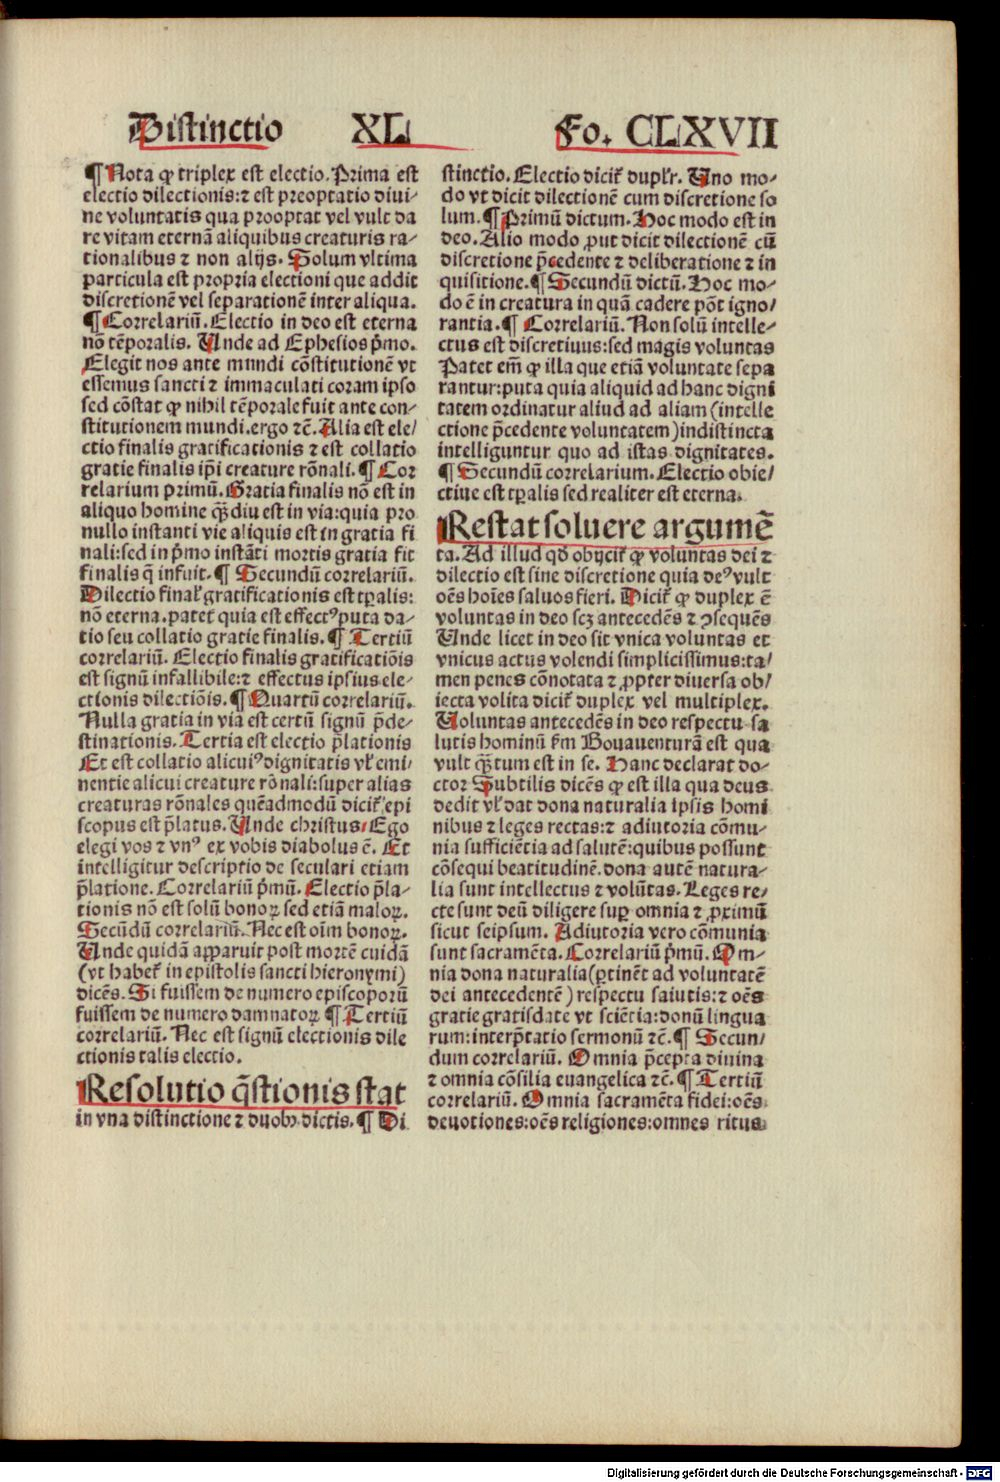 Distinctio XL Fo. CLXVII
¶ Nota ꝙ triplex est electio. Prima est
electio dilectionis: ⁊ est preoptatio diui-
ne voluntatis qua prooptat vel vult da
re vitam eternā aliquibus creaturis ra-
tionalibus ⁊ non alijs. Solum vltima
particula est propria electioni que addit
discretionē vel separationē inter aliqua.
¶ Correlariū. Electio in deo est eterna
nō tēporalis. Unde ad Ephesios pͥmo.
Elegit nos ante mundi cōstitutionē vt
essemus sancti ⁊ immaculati coram ipso
sed cōstat ꝙ nihil tēporale fuit ante con-
stitutionem mundi. ergo ⁊c̄. Alia est ele/
ctio finalis gratificationis ⁊ est collatio
gratie finalis ip̄i creature rōnali. ¶ Cor
relarium primū. Gratia finalis nō est in
aliquo homine qͣ̄diu est in via: quia pro
nullo instanti vie aliquis est in gratia fi
nali: sed in pͥmo instāti mortis gratia fit
finalis q̄ infuit. ¶ Secundū correlariū.
Dilectio final̕ gratificationis est tꝑalis:
nō eterna. patet̕ quia est effectꝰ puta da-
tio seu collatio gratie finalis. ¶ Tertiū
correlariū. Electio finalis gratificatiōis
est signū infallibile: ⁊ effectus ipsius ele-
ctionis dilectiōis. ¶ Quartū correlariū.
Nulla gratia in via est certū signū p̄de-
stinationis. Tertia est electio p̄lationis
Et est collatio alicuiꝰ dignitatis vl̕ emi/
nentie alicui creature rōnali: super alias
creaturas rōnales quēadmodū dicit̕ epi
scopus est p̄latus. Unde christus/ Ego
elegi vos ⁊ vnꝰ ex vobis diabolus ē. Et
intelligitur descriptio de seculari etiam
p̄latione. Correlariū pͥmū. Electio p̄la-
tionis nō est solū bonoꝝ sed etiā maloꝝ.
Secūdū correlariū. Nec est oīm bonoꝝ.
Unde quidā apparuit post mortē cuidā
(vt habet̕ in epistolis sancti hieronymi)
dicēs. Si fuissem de numero episcoporū
fuissem de numero damnatoꝝ ¶ Tertiū
correlariū. Nec est signū electionis dile
ctionis talis electio.
Resolutio q̄stionis stat
in vna distinctione ⁊ duobꝰ dictis. ¶ Di
stinctio. Electio dicit̕ dupl̕r. Uno mo-
do vt dicit dilectionē cum discretione so
lum. ¶ Primū dictum. Hoc modo est in
deo. Alio modo ꝓut dicit dilectionē cū
discretione p̄cedente ⁊ deliberatione ⁊ in
quisitione. ¶ Secundū dictū. Hoc mo-
do ē in creatura in quā cadere pōt igno/
rantia. ¶ Correlariū. Non solū intelle-
ctus est discretiuus: sed magis voluntas
Patet em̄ ꝙ illa que etiā voluntate sepa
rantur: puta quia aliquid ad hanc digni
tatem ordinatur aliud ad aliam (intelle
ctione p̄cedente voluntatem) indistincta
intelliguntur quo ad istas dignitates.
¶ Secundū correlarium. Electio obie/
ctiue est tꝑalis sed realiter est eterna.
Restat soluere argumē
ta. Ad illud qd̕ obijcit̕ ꝙ voluntas dei ⁊
dilectio est sine discretione quia deꝰ vult
oēs hoīes saluos fieri. Dicit̕ ꝙ duplex ē
voluntas in deo scꝫ antecedēs ⁊ ꝯsequēs
Unde licet in deo sit vnica voluntas et
vnicus actus volendi simplicissimus: ta/
men penes cōnotata ⁊ ꝓpter diuersa ob/
iecta volita dicit̕ duplex vel multiplex.
Uoluntas antecedēs in deo respectu sa
lutis hominū ẜm Bouauenturā est qua
vult qͣ̄tum est in se. Hanc declarat do-
ctor Subtilis dicēs ꝙ est illa qua deus
dedit vl̕ dat dona naturalia ipsis homi
nibus ⁊ leges rectas: ⁊ adiutoria cōmu-
nia sufficiētia ad salutē: quibus possunt
cōsequi beatitudinē. dona autē natura-
lia sunt intellectus ⁊ volūtas. Leges re/
cte sunt deū diligere suꝑ omnia ⁊ ꝓximū
sicut seipsum. Adiutoria vero cōmunia
sunt sacramēta. Correlariū pͥmū. Om-
nia dona naturalia (ꝑtinēt ad voluntatē
dei antecedentē) respectu salutis: ⁊ oēs
gratie gratisdate vt sciētia: donū lingua
rum: interp̄tatio sermonū ⁊c̄. ¶ Secun/
dum correlariū. Omnia p̄cepta diuina
⁊ omnia cōsilia euangelica ⁊c̄. ¶ Tertiū
correlariū. Omnia sacramēta fidei: oēs
deuotiones: oēs religiones: omnes ritus
Digitalisierung gefördert durch die Deutsche Forschungsgemeinschaft - DFG